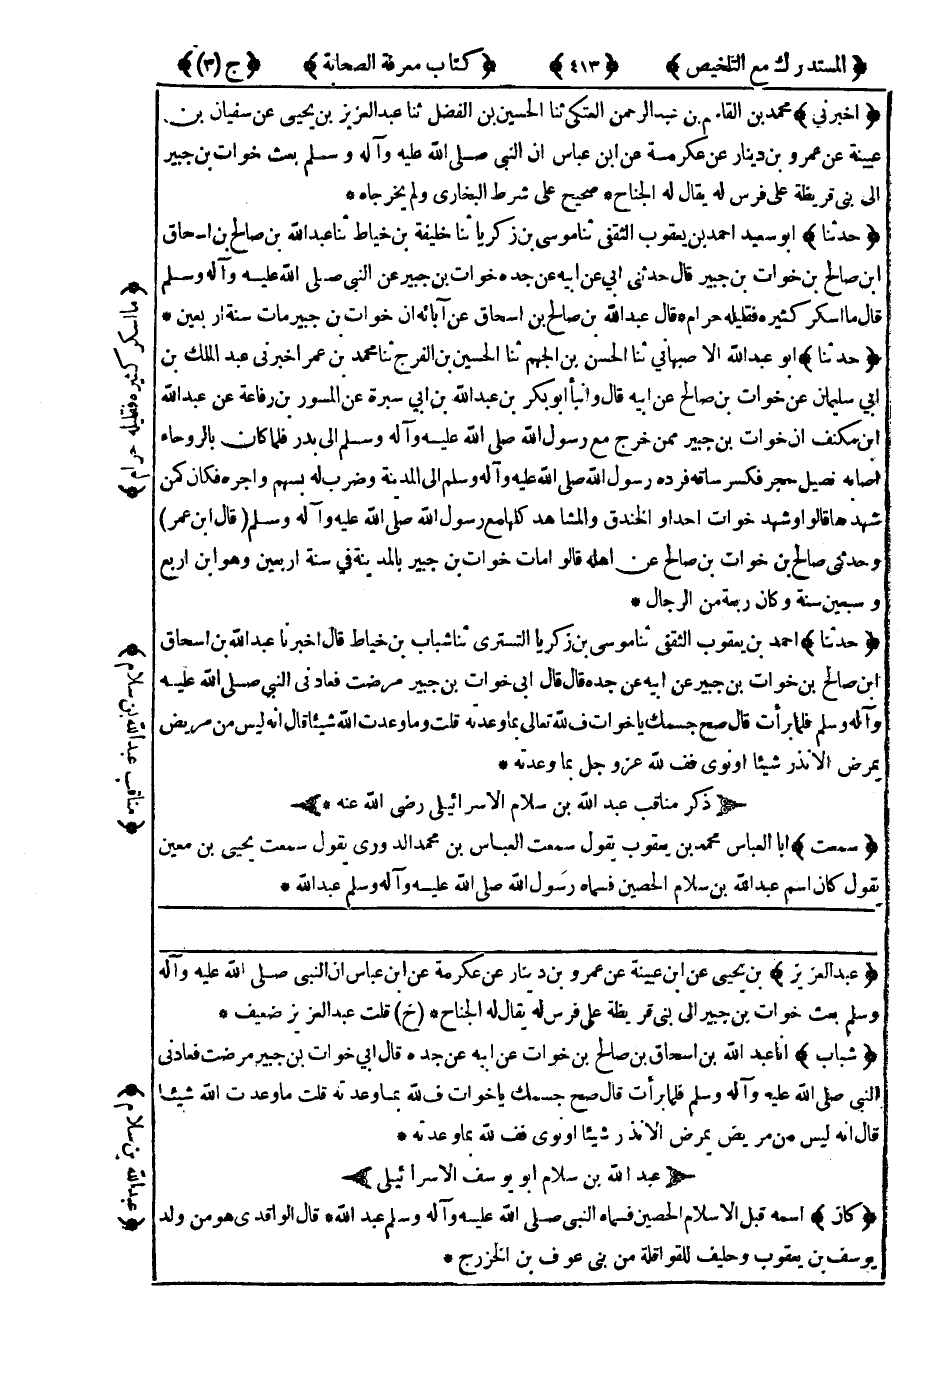 ﴿ المستدرك مع التلخيص ﴾ ﴿ ٤١٣ ﴾ ﴿ كتاب معرفة الصحابة ﴾ ﴿ ج (٣) ﴾
﴿ اخبرني ﴾ محمد بن القاسم بن عبدالرحمن العتكي ثنا الحسين بن الفضل ثنا عبدالعزيز بن يحيى عن سفيان بن
عيينة عن عمرو بن دينار عن عكرمة عن ابن عباس ان النبي صلى الله عليه وآله وسلم بعث خوات بن جبير
الى بنى قريظة على فرس له يقال له الجناح * صحيح على شرط البخارى ولم يخرجاه *
﴿ حدثنا ﴾ ابو سعيد احمد بن يعقوب الثقفى ثنا موسى بن زكريا ثنا خليفة بن خياط ثنا عبدالله بن صالح بن اسحاق
ابن صالح بن خوات بن جبير قال حدثنى ابي عن ابيه عن جده خوات بن جبير عن النبي صلى الله عليه وآله وسلم
قال ما اسكر كثيره فقليله حرام * قال عبدالله بن صالح بن اسحاق عن آبائه ان خوات بن جبير مات سنة اربعين *
﴿ حدثنا ﴾ ابو عبدالله الاصبهاني ثنا الحسن بن الجهم ثنا الحسين بن الفرج ثنا محمد بن عمر اخبرنى عبد الملك بن
ابي سليمان عن خوات بن صالح عن ابيه قال وانبأ ابو بكر بن عبدالله بن ابي سبرة عن المسور بن رفاعة عن عبدالله
ابن مكنف ان خوات بن جبير ممن خرج مع رسول الله صلى الله عليه وآله وسلم الى بدر فلما كان بالروحاء
اصابه نصيل حجر فكسر ساقه فرده رسول الله صلى الله عليه وآله وسلم الى المدينة وضرب له بسهم واجره فكان كمن
شهدها قالوا وشهد خوات احدا والخندق والمشاهد كلها مع رسول الله صلى الله عليه وآله وسلم ( قال ابن عمر )
وحدثنى صالح بن خوات بن صالح عن اهله قالوا مات خوات بن جبير بالمدينة في سنة اربعين وهو ابن اربع
وسبعين سنة وكان ربعة من الرجال *
﴿ حدثنا ﴾ احمد بن يعقوب الثقفى ثنا موسى بن زكريا التسترى ثنا شباب بن خياط قال اخبرنا عبدالله بن اسحاق
ابن صالح بن خوات بن جبير عن ابيه عن جده قال قال ابى خوات بن جبير مرضت فعادنى النبي صلى الله عليه
وآله وسلم فلما برأت قال صح جسمك يا خوات ف لله تعالى بما وعدته قلت وما وعدت الله شيئا قال انه ليس من مريض
يمرض الا نذر شيئا او نوى فف لله عزوجل بما وعدته *
﴿ ذكر مناقب عبد الله بن سلام الاسرائيلى رضى الله عنه * ﴾
﴿ سمعت ﴾ ابا العباس محمد بن يعقوب يقول سمعت العباس بن محمد الدورى يقول سمعت يحيى بن معين
يقول كان اسم عبدالله بن سلام الحصين فسماه رسول الله صلى الله عليه وآله وسلم عبدالله *
﴿ عبد العزيز ﴾ بن يحيى عن ابن عيينة عن عمرو بن دينار عن عكرمة عن ابن عباس ان النبى صلى الله عليه وآله
وسلم بعث خوات بن جبير الى بنى قريظة على فرس له يقال له الجناح * (خ) قلت عبد العزيز ضعيف *
﴿ شباب ﴾ انا عبد الله بن اسحاق بن صالح بن خوات عن ابيه عن جده قال ابي خوات بن جبير مرضت فعادنى
النبى صلى الله عليه وآله وسلم فلما برأت قال صح جسمك يا خوات ف لله بما وعدته قلت ما وعدت الله شيئا
قال انه ليس من مريض يمرض الا نذر شيئا او نوى فف لله بما وعدته *
﴿ عبد الله بن سلام ابو يوسف الاسرائيلى ﴾
﴿ كان ﴾ اسمه قبل الاسلام الحصين فسماه النبى صلى الله عليه وآله وسلم عبد الله * قال الواقدى هو من ولد
يوسف بن يعقوب وحليف للقواقلة من بنى عوف بن الخزرج *
﴿ ما اسكر كثيره فقليله حرام ﴾
﴿ مناقب عبدالله بن سلام ﴾
﴿ عبدالله بن سلام ﴾